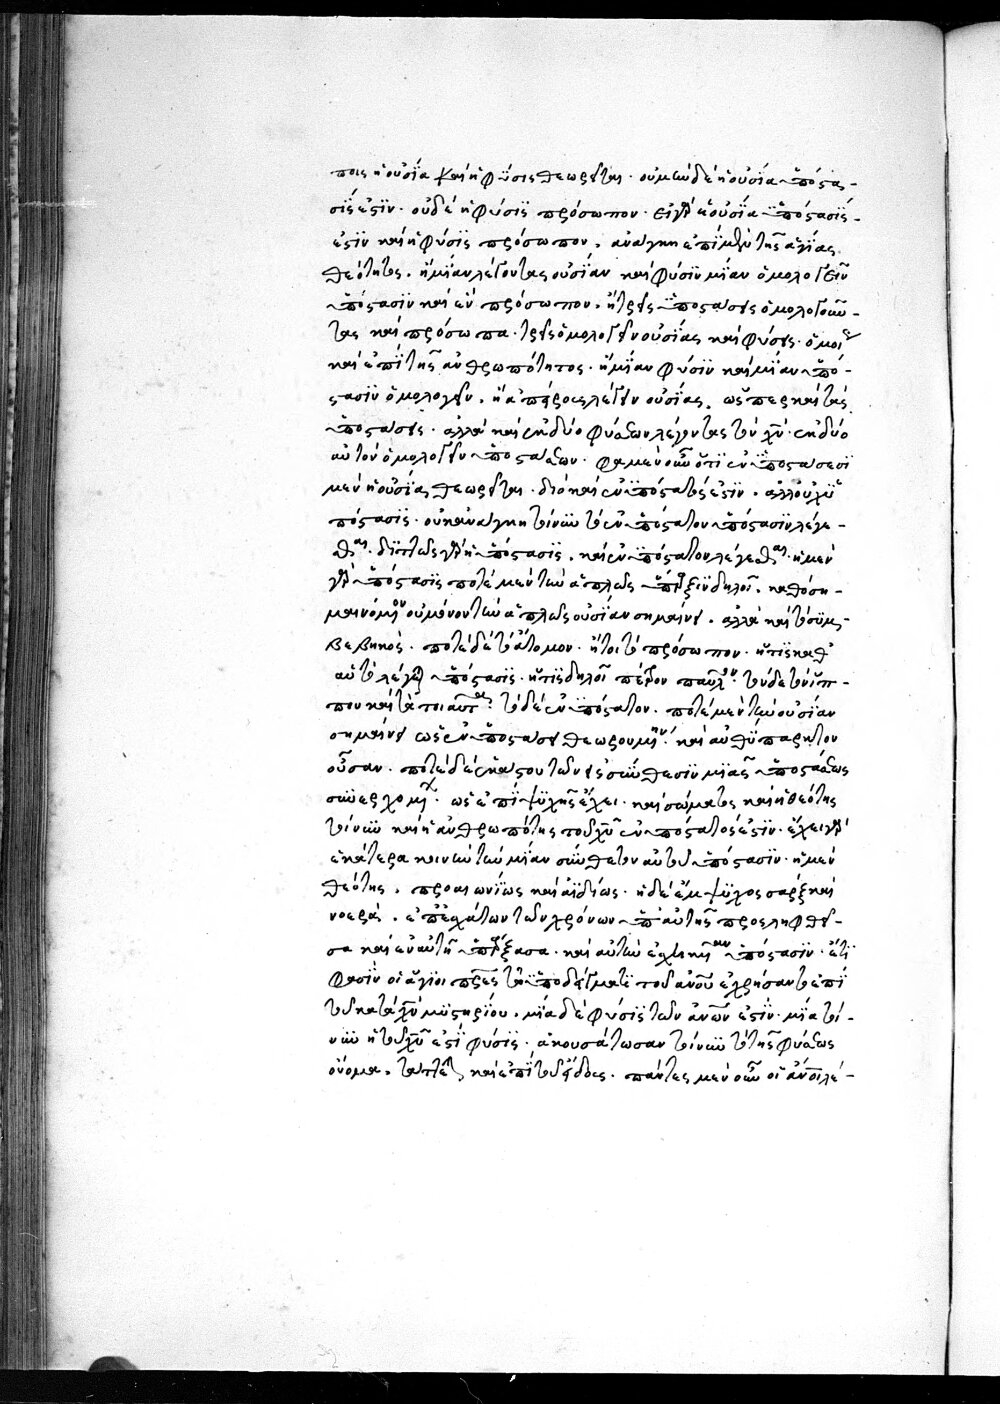 ποις ἡ οὐσία καὶ ἡ φύσις θεωρεῖται · οὐ μὴν δὲ ἡ οὐσία ὑπόστα-
σίς ἐστιν · οὐδὲ ἡ φύσις πρόσωπον · εἰ γὰρ ἡ οὐσία ὑπόστασίς
ἐστιν καὶ ἡ φύσις πρόσωπον, ἀνάγκη ἐπὶ μὲν τῆς ἁγίας
θεότητος, ἢ μίαν λέγοντας οὐσίαν καὶ φύσιν μίαν ὁμολογεῖν
ὑπόστασιν καὶ ἓν πρόσωπον, ἢ τρεῖς ὑποστάσεις ὁμολογοῦν-
τας καὶ πρόσωπα · τρεῖς ὁμολογεῖν οὐσίας καὶ φύσεις · ὁμοί
καὶ ἐπὶ τῆς ἀνθρωπότητος · ἢ μίαν φύσιν καὶ μίαν ὑπό-
στασιν ὁμολογεῖν, ἢ ἀπείρους λέγειν οὐσίας, ὥσπερ καὶ τὰς
ὑποστάσεις · ἀλλὰ καὶ ἐκ δύο φύσεων λέγοντας τὸν χν · ἐκ δύο
αὐτὸν ὁμολογεῖν ὑποστάσεων · φαμὲν οὖν ὅτι ἐν ὑποστάσεσι
μὲν ἡ οὐσία θεωρεῖται · διὸ καὶ ἐνυπόστατός ἐστιν, ἀλλ' οὐχ ὑ
πόστασις · οὐκ ἀνάγκη τοίνυν τὸ ἐνυπόστατον ὑπόστασιν λέγε-
σθαι · διττῶς γὰρ ἡ ὑπόστασις, καὶ ἐνυπόστατον λέγεσθαι · ἡ μὲν
γὰρ ὑπόστασις ποτὲ μὲν τὴν ἁπλῶς ὕπαρξιν δηλοῖ, καθὸ ση-
μαινόμενον οὐ μόνον τὴν ἁπλῶς οὐσίαν σημαίνει, ἀλλὰ καὶ τὸ συμ-
βεβηκός · ποτὲ δὲ τὸ ἄτομον · ἤτοι τὸ πρόσωπον · ἥτις καθ'
αὑτὸ λέγεται ὑπόστασις · ἥτις δηλοῖ πέτρον παῦλον · τόνδε τὸν ἵπ-
πον καὶ τὰ τοιαῦτα · τὸ δὲ ἐνυπόστατον · ποτὲ μὲν τὴν οὐσίαν
σημαίνει ὡς ἐν ὑποστάσει θεωρουμένην καὶ αὐθύπαρκτον
οὖσαν · ποτὲ δὲ ἕκαστον τῶν εἰς σύνθεσιν μιᾶς ὑποστάσεως
συνερχομέν · ὡς ἐπὶ ψυχῆς ἔχει · καὶ σώματος καὶ ἡ θεότης
τοίνυν καὶ ἡ ἀνθρωπότης τοῦ χυ ἐνυπόστατός ἐστιν · ἔχει γὰρ
ἑκάτερα κοινὴν τὴν μίαν σύνθετον αὐτοῦ ὑπόστασιν · ἡ μὲν
θεότης, προαιωνίως καὶ ἀϊδίως · ἡ δὲ ἔμψυχος σὰρξ καὶ
νοερά, ἐπ' ἐσχάτων τῶν χρόνων ὑπ' αὐτῆς προσληφθεῖ-
σα καὶ ἐν αὐτῇ ὑπάρξασα · καὶ αὐτὴν ἐσχηκυῖαν ὑπόστασιν · ἔτι
φασὶν οἱ ἅγιοι πρες τῷ ὑποδείγματι τοῦ ανου ἐχρήσαντο ἐπὶ
τοῦ κατὰ χν μυστηρίου, μία δὲ φύσις τῶν ανων ἐστίν · μία τοί-
νυν ἡ τοῦ χυ ἐστὶ φύσις · ἀκουσάτωσαν τοίνυν τὸ τῆς φύσεως
ὄνομα, τάττεται καὶ ἐπὶ τοῦ εἴδους · πάντες μὲν οὖν οἱ ανοι λέ-